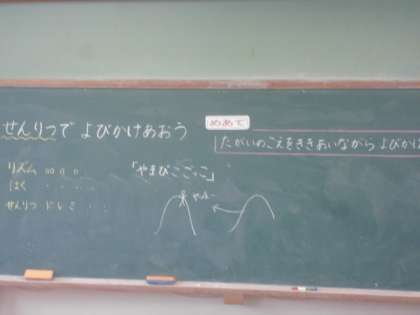 せんりつで よびかけあおう
めあて
たがいのこえをききあいながら よびか
リズム
「やまびこごっこ」
はく ・・・・
せんりつ ド レ ミ ・・
ヤッホー